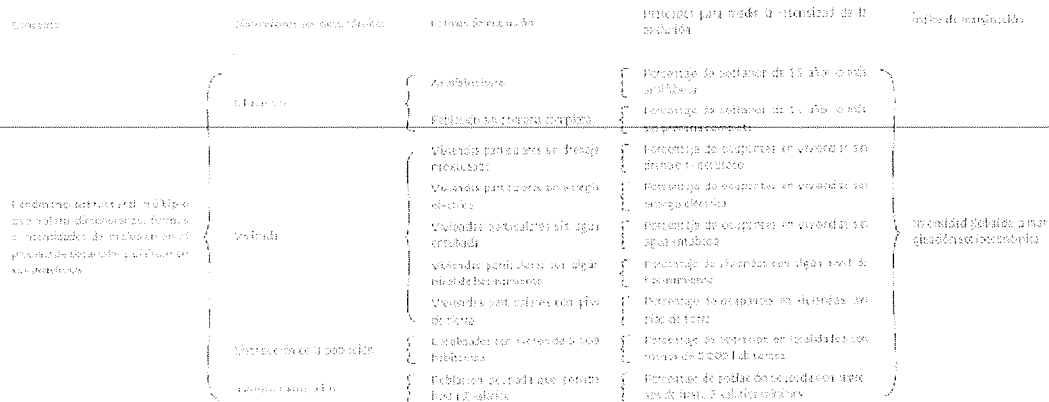 Concepto
Dimensiones socioeconómicas
Formas de exclusión
Indicador para medir la intensidad de la
exclusión
Índice de marginación
Fenómeno estructural múltiple
que valora dimensiones, formas
e intensidades de exclusión en el
proceso de desarrollo y disfrute de
sus beneficios
Educación
Vivienda
Distribución de la población
Analfabetismo
Población sin primaria completa
Viviendas particulares sin drenaje
ni excusado
Viviendas particulares sin energía
eléctrica
Viviendas particulares sin agua
entubada
Viviendas particulares con algún
nivel de hacinamiento
Viviendas particulares con piso
de tierra
Localidades con menos de 5 000
habitantes
Población ocupada que percibe
hasta 2 salarios
Porcentaje de población de 15 años o más
analfabeta
Porcentaje de población de 15 años o más
sin primaria completa
Porcentaje de ocupantes en viviendas sin
drenaje ni excusado
Porcentaje de ocupantes en viviendas sin
energía eléctrica
Porcentaje de ocupantes en viviendas sin
agua entubada
Porcentaje de viviendas con algún nivel de
hacinamiento
Porcentaje de ocupantes en viviendas con
piso de tierra
Porcentaje de población en localidades con
menos de 5 000 habitantes
Porcentaje de población ocupada con ingre-
sos de hasta 2 salarios mínimos
Intensidad global de la mar-
ginación socioeconómica